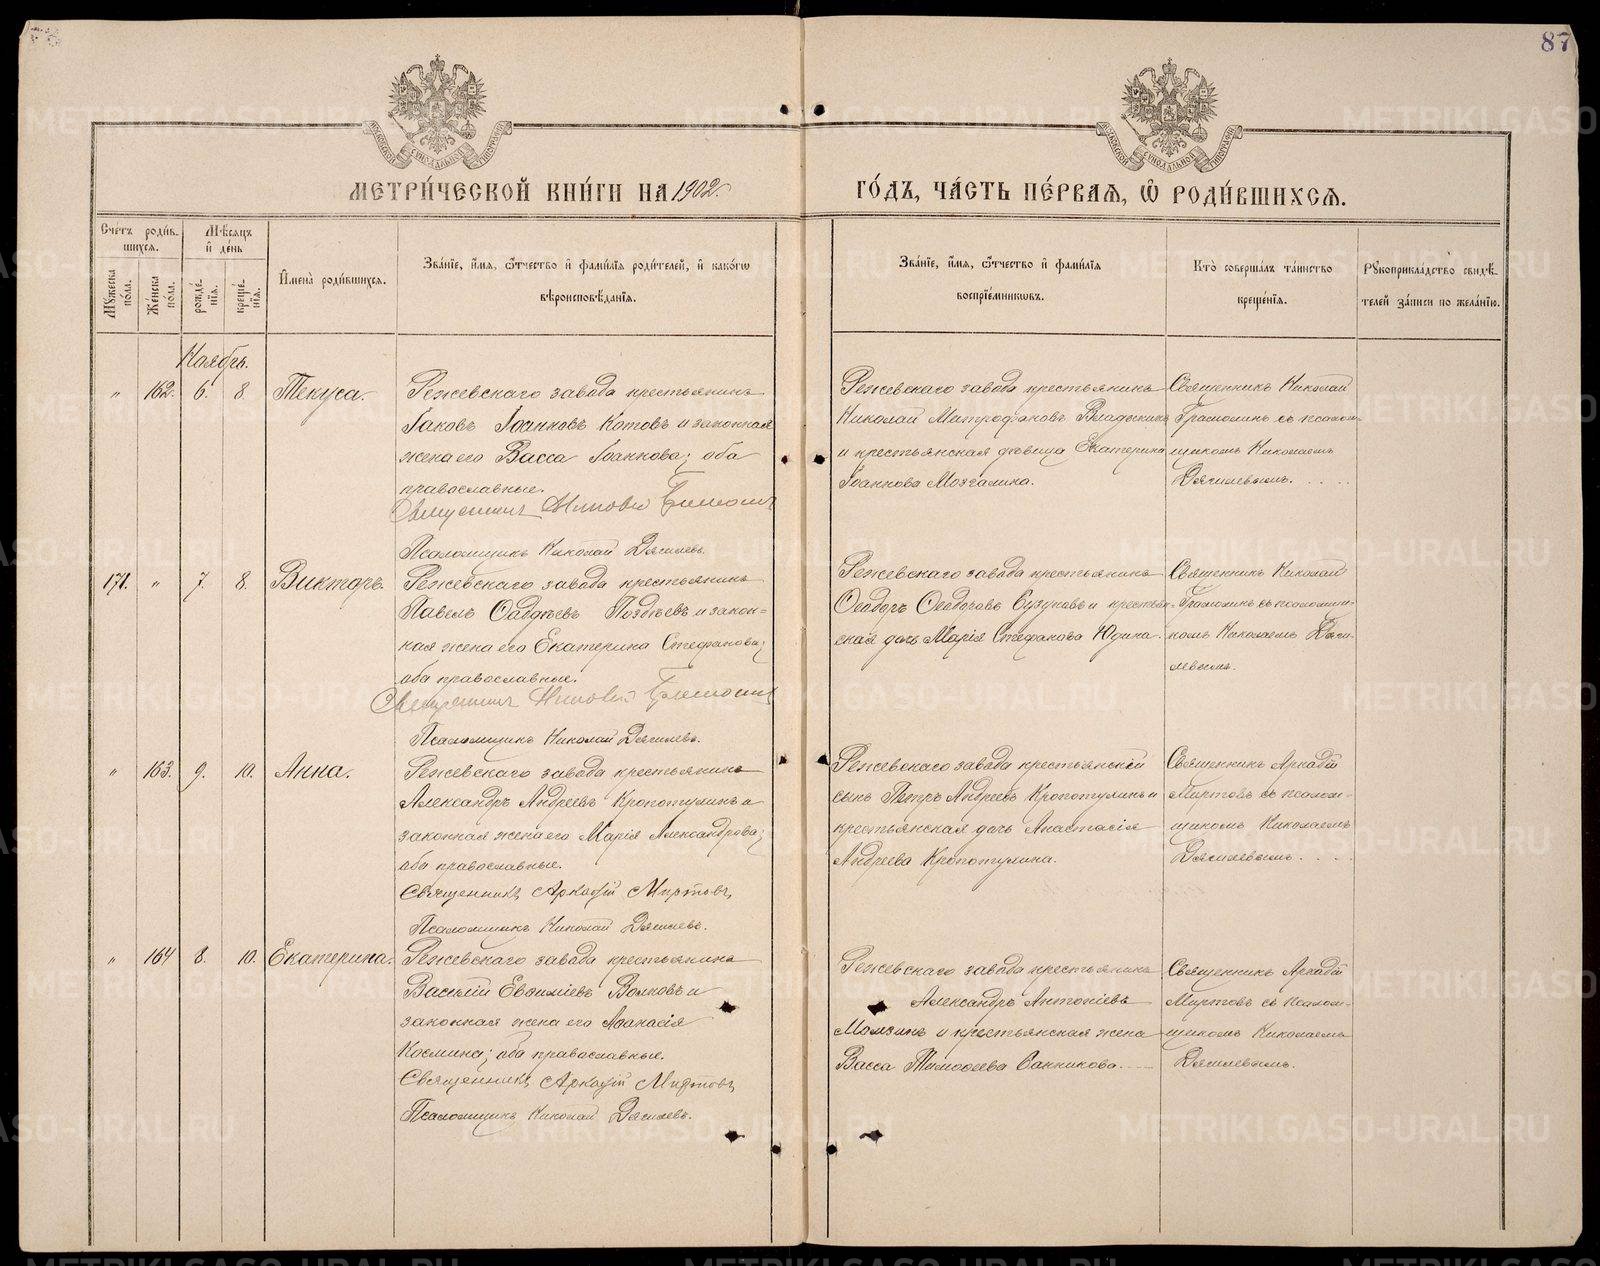 87
МЕТРИ́ЧЕСКОЙ КНИ́ГИ НА 1902.
ГО́ДЪ, ЧА́СТЬ ПЕ́РВАѦ, Ѽ РОДИ́ВШИХСѦ.
Сче́тъ роди́в-
шихсѧ.
Мꙋжеска по́ла.
Же́нска по́ла.
Мѣ́сѧцъ
и҆ де́нь
рожде́нїѧ.
креще́нїѧ.
И҆мена̀ роди́вшихсѧ.
Зва́нїе, и҆́мѧ, ѻ҆́тчество и҆ фами́лїѧ роди́телей, и҆ како́гѡ
вѣроисповѣ́данїѧ.
Зва́нїе, и҆́мѧ, ѻ҆́тчество и҆ фами́лїѧ
воспрїе́мниковъ.
Кто̀ соверша́лъ та́инство
креще́нїѧ.
Рꙋкоприкла́дство свидѣ́-
телей за́писи по жела́нїю.
Ноябрь.
" 162. 6. 8. Текуса.
Режевскаго завода крестьянинъ
Іаковъ Іоанновъ Котовъ и законная
жена его Васса Іоаннова; оба
православные.
Священникъ Николай Грамолин
Псаломщикъ Николай Дягилевъ.
Режевскаго завода крестьянинъ
Николай Митрофановъ Владыкинъ
и крестьянская девица Екатерина
Іоаннова Мохалина.
Священникъ Николай
Грамолинъ съ псалом-
щикомъ Николаемъ
Дягилевымъ.
171. " 7. 8. Викторъ.
Режевскаго завода крестьянинъ
Павелъ Фаддѣевъ Поздѣевъ и закон-
ная жена его Екатерина Стефанова;
оба православные.
Священникъ Николай Грамолин
Псаломщикъ Николай Дягилевъ.
Режевскаго завода крестьянинъ
Ѳеодоръ Ѳеодоровъ Бузуновъ и крестьян-
ская дочь Марія Стефанова Юдина.
Священникъ Николай
Грамолинъ съ псаломщи-
комъ Николаемъ Дяги-
левымъ.
" 163. 9. 10. Анна.
Режевскаго завода крестьянинъ
Александръ Андреевъ Кропотухинъ и
законная жена его Марія Александрова;
оба православные.
Священникъ Аркадій Миртовъ
Псаломщикъ Николай Дягилевъ.
Режевскаго завода крестьянскій
сынъ Петръ Андреевъ Кропотухинъ и
крестьянская дочь Анастасія
Андреева Кропотухина.
Священникъ Аркадій
Миртовъ съ псалом-
щикомъ Николаемъ
Дягилевымъ.
" 164 8. 10. Екатерина.
Режевскаго завода крестьянинъ
Василій Евѳиміевъ Волковъ и
законная жена его Аѳанасія
Космина; оба православные.
Священникъ Аркадій Миртовъ
Псаломщикъ Николай Дягилевъ.
Режевскаго завода крестьянинъ
Александръ Антоніевъ
Момзинъ и крестьянская жена
Васса Тимоѳеева Санникова.
Священникъ Аркадій
Миртовъ съ псалом-
щикомъ Николаемъ
Дягилевымъ.
METRIKI.GASO-URAL.RU